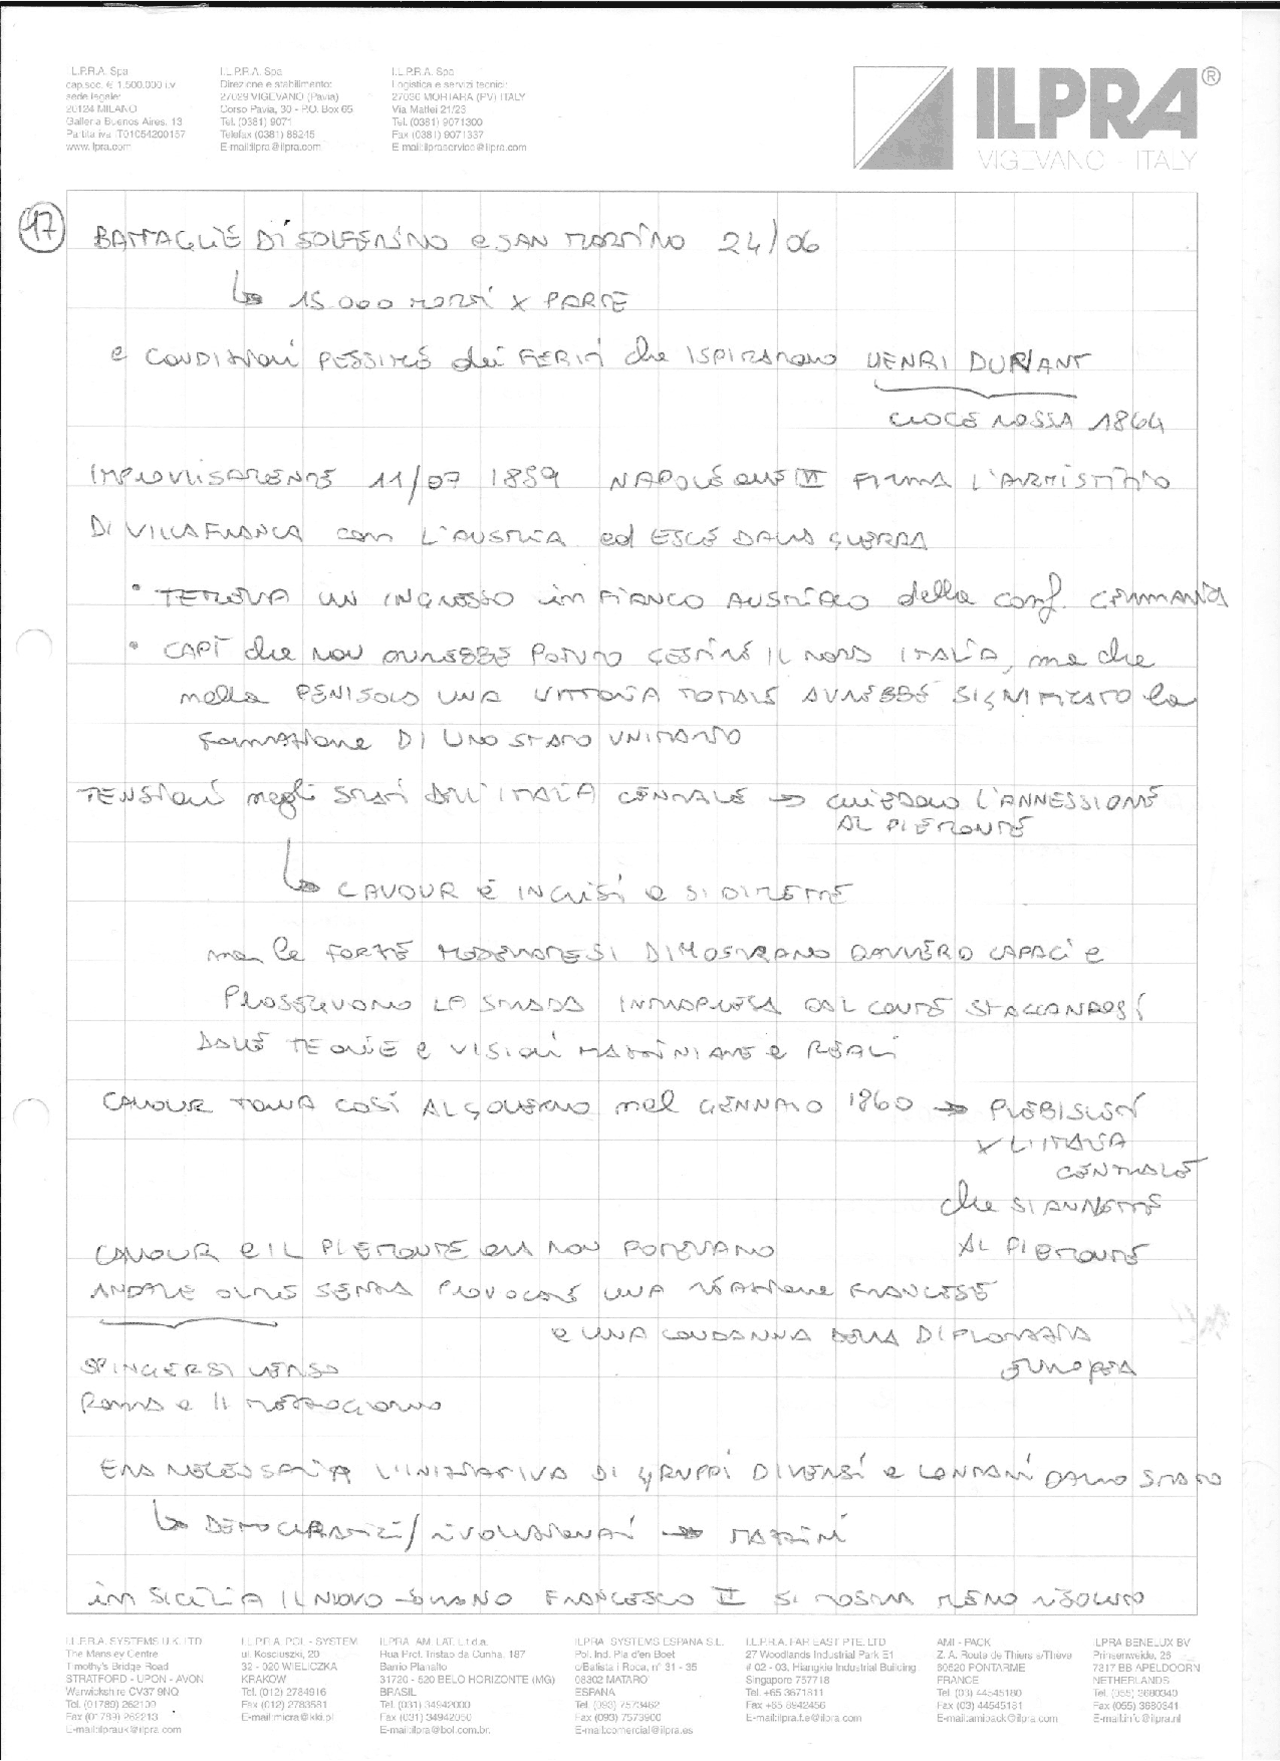 I.L.P.R.A. Spa
cap.soc. € 1.500.000 i.v
sede legale:
20124 MILANO
Galleria Buenos Aires, 13
Partita iva IT01054200157
www.ilpra.com
I.L.P.R.A. Spa
Direzione e stabilimento:
27029 VIGEVANO (Pavia)
Corso Pavia, 30 - P.O. Box 65
Tel. (0381) 9071
Telefax (0381) 88245
E-mail:ilpra@ilpra.com
I.L.P.R.A. Spa
Logistica e servizi tecnici:
27036 MORTARA (PV) ITALY
Via Mattei 21/23
Tel. (0381) 9071300
Fax (0381) 9071337
E-mail:ilpraservice@ilpra.com
ILPRA®
VIGEVANO - ITALY
17
BATTAGLIE DI SOLFERINO e SAN MARTINO 24/06
↳ 15.000 MORTI X PARTE
e CONDIZIONI PESSIME dei FERITI che ISPIRARONO HENRI DUNANT
CROCE ROSSA 1864
IMPROVVISAMENTE 11/07 1859 NAPOLEONE III FIRMA L'ARMISTIZIO
DI VILLAFRANCA con L'AUSTRIA ed ESCE DALLA GUERRA
• TEMEVA UN INGRESSO in FIANCO AUSTRIACO della conf. GERMANICA
• CAPÌ che NON AVREBBE POTUTO GESTIRE IL NORD ITALIA, ma che
nella PENISOLA UNA VITTORIA TOTALE AVREBBE SIGNIFICATO la
formazione DI UNO STATO UNITARIO
TENSIONI negli STATI DELL'ITALIA CENTRALE → CHIEDONO L'ANNESSIONE
AL PIEMONTE
↳ CAVOUR È IN CRISI e SI DIMETTE
ma le FORZE MODERATE SI DIMOSTRANO DAVVERO CAPACI e
PROSEGUONO LA STRADA INTRAPRESA DAL CONTE STACCANDOSI
DALLE TEORIE e VISIONI MAZZINIANE e REALI
CAVOUR TORNA COSÌ AL GOVERNO nel GENNAIO 1860 → PLEBISCITI
X L'ITALIA
CENTRALE
che SI ANNETTE
AL PIEMONTE
CAVOUR e IL PIEMONTE ORA NON POTEVANO
ANDARE OLTRE SENZA PROVOCARE UNA REAZIONE FRANCESE
e UNA CONDANNA DELLA DIPLOMAZIA
EUROPEA
SPINGERSI VERSO
Roma e Il MEZZOGIORNO
ERA NECESSARIA L'INIZIATIVA DI GRUPPI DIVERSI e LONTANI DALLO STATO
↳ DEMOCRATICI/rivoluzionari → MAZZINI
in SICILIA IL NUOVO SOVRANO FRANCESCO II SI MOSTRA MENO RISOLUTO
I.L.P.R.A. SYSTEMS U.K. LTD
The Mansley Centre
Timothy's Bridge Road
STRATFORD - UPON - AVON
Warwickshire CV37 9NQ
Tel. (01789) 262100
Fax (01789) 262213
E-mail:ilprauk@ilpra.com
I.L.P.R.A. POL - SYSTEM
ul. Kosciuszki, 20
32 - 020 WIELICZKA
KRAKOW
Tel. (012) 2784916
Fax (012) 2783581
E-mail:micra@kki.pl
ILPRA AM. LAT. L.t.d.a.
Hua Prof. Tristao da Cunha, 187
Barrio Planalto
31720 - 520 BELO HORIZONTE (MG)
BRASIL
Tel. (031) 34942000
Fax (031) 34942050
E-mail:ilpra@bol.com.br.
ILPRA SYSTEMS ESPANA S.L.
Pol. Ind. Pla d'en Boet
c/Batista i Roca, n° 31 - 35
08302 MATARO
ESPANA
Tel. (093) 7573462
Fax (093) 7573900
E-mail:comercial@ilpra.es
I.L.P.R.A. FAR EAST PTE. LTD
27 Woodlands Industrial Park E1
# 02 - 03, Hiangkie Industrial Building
Singapore 757718
Tel. +65 3671811
Fax +65 8942456
E-mail:ilpra.f.e@ilpra.com
AMI - PACK
Z. A. Route de Thiers s/Theve
60520 PONTARME
FRANCE
Tel. (03) 44545180
Fax (03) 44545181
E-mail:amipack@ilpra.com
ILPRA BENELUX BV
Prinsenweide, 26
7317 BB APELDOORN
NETHERLANDS
Tel. (055) 3680340
Fax (055) 3680341
E-mail:info@ilpra.nl